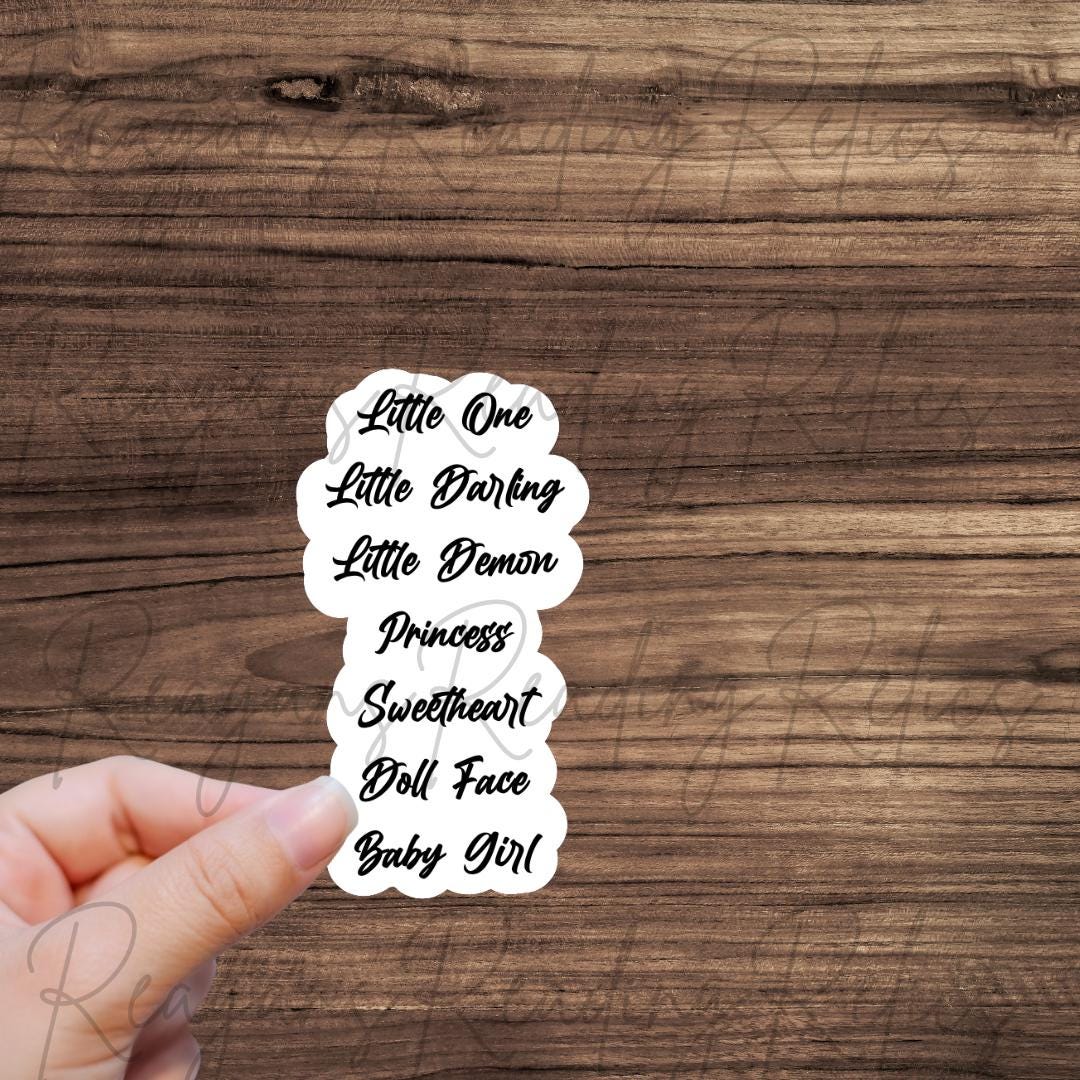 Reagans Reading Relics
Reagans Reading Relics
Little One
Little Darling
Little Demon
Princess
Sweetheart
Doll Face
Baby Girl
Reagans Reading Relics
Reagans Reading Relics